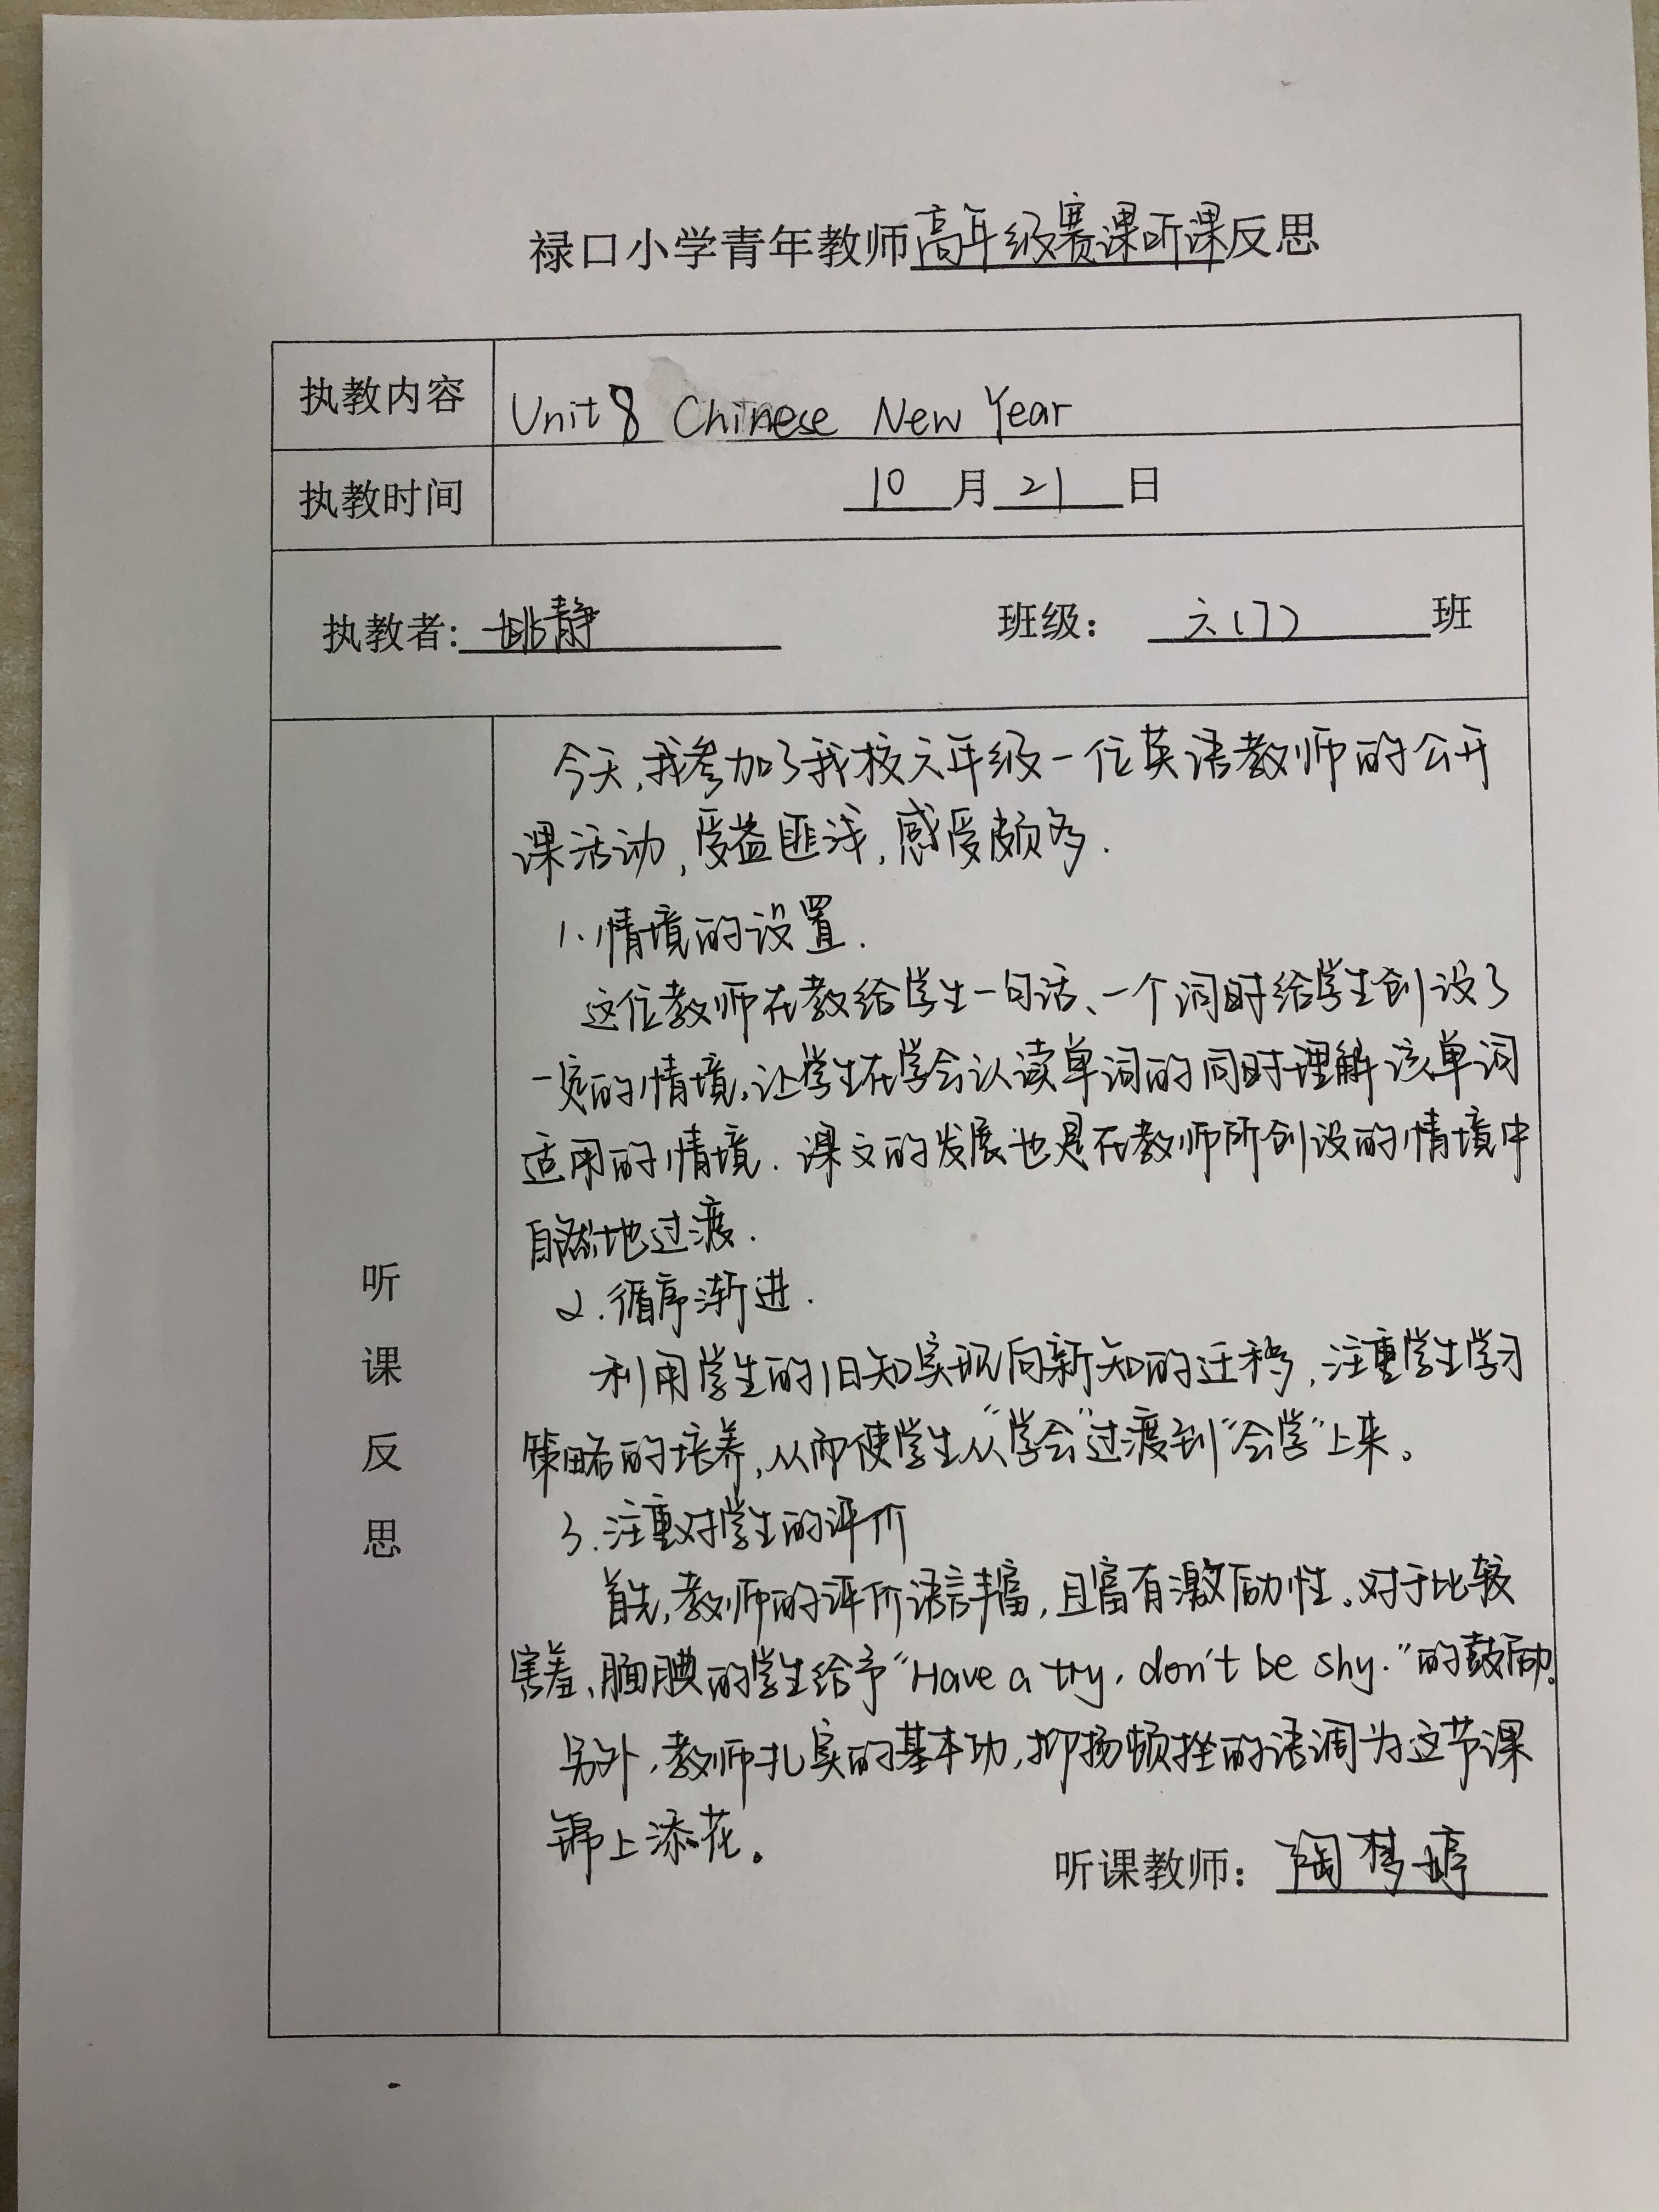 禄口小学青年教师高年级赛课听课反思
执教内容 Unit 8 Chinese New Year
执教时间 10 月 21 日
执教者: 姚静 班级: 六(7) 班
听课反思
今天,我参加了我校六年级一位英语教师的公开
课活动,受益匪浅,感受颇多.
1.情境的设置.
这位教师在教给学生一句话、一个词时给学生创设了
一定的情境,让学生在学会认读单词的同时理解该单词
适用的情境.课文的发展也是在教师所创设的情境中
自然地过渡.
2.循序渐进.
利用学生的旧知实现向新知的迁移,注重学生学习
策略的培养,从而使学生从“学会”过渡到“会学”上来。
3.注重对学生的评价
首先,教师的评价语言丰富,且富有激励性。对于比较
害羞、腼腆的学生给予“Have a try, don't be shy.”的鼓励。
另外,教师扎实的基本功,抑扬顿挫的语调为这节课
锦上添花。
听课教师: 陶梦婷